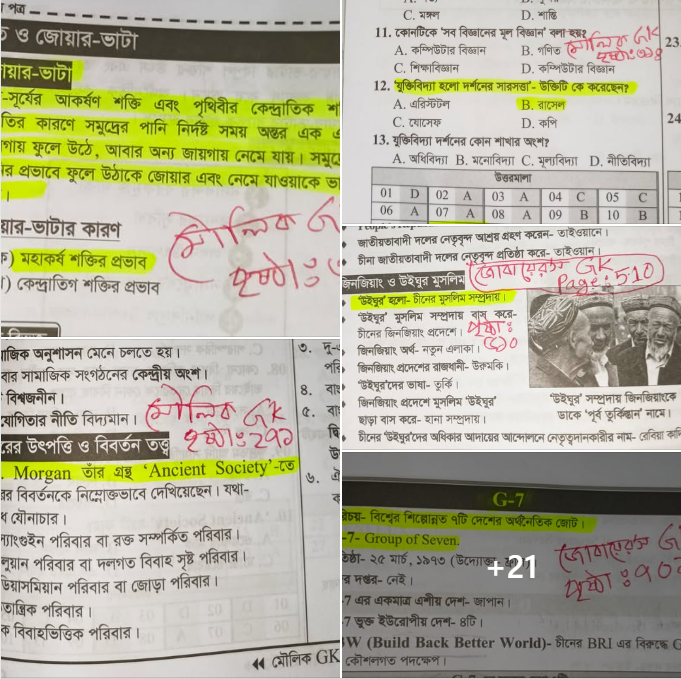 পত্র
ও জোয়ার-ভাটা
য়ার-ভাটা
-সূর্যের আকর্ষণ শক্তি এবং পৃথিবীর কেন্দ্রাতিক
তির কারণে সমুদ্রের পানি নির্দষ্ট সময় অন্তর এক
গায় ফুলে উঠে, আবার অন্য জায়গায় নেমে যায়। সমুদ্রে
র প্রভাবে ফুলে উঠাকে জোয়ার এবং নেমে যাওয়াকে
য়ার-ভাটার কারণ
মৌলিক GK
পৃষ্ঠাঃ
ক) মহাকর্ষ শক্তির প্রভাব
) কেন্দ্রাতিগ শক্তির প্রভাব
C. মঙ্গল D. শান্তি
11. কোনটিকে 'সব বিজ্ঞানের মূল বিজ্ঞান' বলা হয়?
A. কম্পিউটার বিজ্ঞান B. গণিত
C. শিক্ষাবিজ্ঞান D. কম্পউটার বিজ্ঞান
মৌলিক GK
23.
12. 'যুক্তিবিদ্যা হলো দর্শনের সারসত্তা'- উক্তিটি কে করেছেন?
A. এরিস্টটল B. রাসেল
C. যোসেফ D. কপি
24
13. যুক্তিবিদ্যা দর্শনের কোন শাখার অংশ?
A. অধিবিদ্যা B. মনোবিদ্যা C. মূল্যবিদ্যা D. নীতিবিদ্যা
উত্তরমালা
01 D 02 A 03 A 04 C 05 C
06 A 07 A 08 A 09 B 10 B
জাতীয়তাবাদী দলের নেতৃবৃন্দ আশ্রয় গ্রহণ করেন- তাইওয়ানে।
চীনা জাতীয়তাবাদী দলের নেতৃবৃন্দ প্রতিষ্ঠা করে- তাইওয়ান।
জিনজিয়াং ও উইঘুর মুসলিম
GK
Page: 510
'উইঘুর' হলো- চীনের মুসলিম সম্প্রদায়।
'উইঘুর' মুসলিম সম্প্রদায় বাস করে-
চীনের জিনজিয়াং প্রদেশে।
পৃষ্ঠাঃ
৫১০
জিনজিয়াং অর্থ- নতুন এলাকা।
জিনজিয়াং প্রদেশের রাজধানী- উরুমকি।
'উইঘুর'দের ভাষা- তুর্কি।
জিনজিয়াং প্রদেশে মুসলিম 'উইঘুর'
ছাড়া বাস করে- হানা সম্প্রদায়।
'উইঘুর' সম্প্রদায় জিনজিয়াংকে
ডাকে 'পূর্ব তুর্কিস্তান' নামে।
চীনের 'উইঘুর'দের অধিকার আদায়ের আন্দোলনে নেতৃত্বদানকারীর নাম- রেবিয়া
াজিক অনুশাসন মেনে চলতে হয়।
বার সামাজিক সংগঠনের কেন্দ্রীয় অংশ।
বিশ্বজনীন।
যোগিতার নীতি বিদ্যমান।
মৌলিক GK
পৃষ্ঠাঃ ২৭১
৩.
৪.
৫.
৬.
রের উৎপত্তি ও বিবর্তন তত্ত্ব
. Morgan তাঁর গ্রন্থ 'Ancient Society'-তে
র বিবর্তনকে নিম্নোক্তভাবে দেখিয়েছেন। যথা-
ধ যৌনাচার।
্যাংগুইন পরিবার বা রক্ত সম্পর্কিত পরিবার।
লুয়ান পরিবার বা দলগত বিবাহ সৃষ্ট পরিবার।
ডিয়াসমিয়ান পরিবার বা জোড়া পরিবার।
তান্ত্রিক পরিবার।
ক বিবাহভিত্তিক পরিবার।
মৌলিক GK
G-7
রিচয়- বিশ্বের শিল্পোন্নত ৭টি দেশের অর্থনৈতিক জোট।
-7- Group of Seven.
তিষ্ঠা- ২৫ মার্চ, ১৯৭৩
+21
র দপ্তর- নেই।
7 এর একমাত্র এশীয় দেশ- জাপান।
7 ভুক্ত ইউরোপীয় দেশ- ৪টি।
W (Build Back Better World)- চীনের BRI এর বিরুদ্ধে G
কৌশলগত পদক্ষেপ।